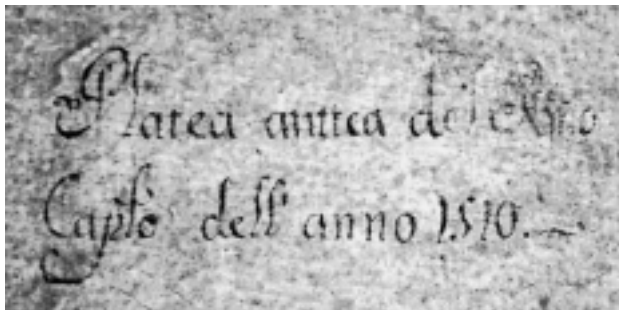 Platea antica del
Caplo dell'anno 1510.